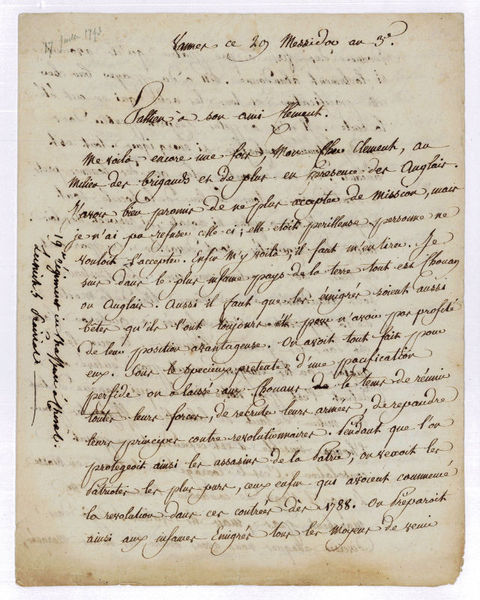 juillet 1795
Vannes ce 29 Messidor an 3e.
Tallien à son ami Clément.
Me voilà, encore une fois, Mon Clement, au
Milieu des brigands et de plus en présence des Anglais.
J'avois bien promis de ne plus accepter de mission, mais
je n'ai pu refuser celle ci; elle étoit perilleuse personne ne
vouloit l'accepter. Enfin m'y voilà; il faut m'en tirer. Je
suis dans le plus infame pays de la terre tout est Chouan
ou Anglais. Aussi il faut que les émigrés soient aussi
bêtes qu'ils l'ont toujours été pour n'avoir pas profité
de leur position avantageuse. On avoit tout fait pour
eux. Sous le specieux pretexte d'une pacification
perfide on a laissé aux Chouans le tems de réunir
toutes leurs forces, de recruter leurs armées, de repandre
leurs principes contre revolutionnaires. Pendant que l'on
protégeoit ainsi les assassins de la patrie, on
Patriotes les plus purs, ceux enfin qui avoient commencé
la revolution dans ces contrées dès 1788. On préparoit
ainsi aux infames Emigrés tous les moyens de venir
19